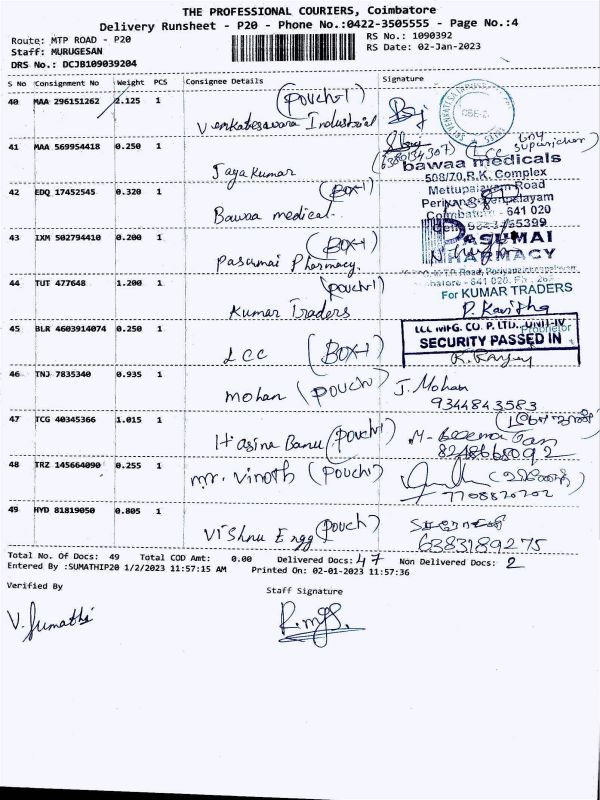 THE PROFESSIONAL COURIERS, Coimbatore
Delivery Runsheet - P20 - Phone No.:0422-3505555 - Page No.:4
Route: MTP ROAD - P20
RS No.: 1090392
Staff: MURUGESAN
RS Date: 02-Jan-2023
DRS No.: DCJB109039204
S No Consignment No Weight PCS Consignee Details Signature
40 MAA 296151262 2.125 1 (Pouch-1)
Venkateswara Industrial
41 MAA 569954418 0.250 1
(6380134307)
Jayakumar
bawaa medicals
508/70,R.K. Complex
Mettupalayam Road
42 EDQ 17452545 0.320 1 (Box-1)
Bawaa medical
Coimbatore - 641 020
43 IXM 502794410 0.200 1 (Box-1)
Pasumai Pharmacy
PASUMAI
PHARMACY
44 TUT 477648 1.200 1 (Pouch-1)
Kumar Traders
For KUMAR TRADERS
P. Kavitha
Proprietor
45 BLR 4603914074 0.250 1
LCC (Box-1)
LCC MFG. CO. P. LTD., UNIT-IV
SECURITY PASSED IN
46 TNJ 7835340 0.935 1
Mohan (Pouch)
J. Mohan
9344843583
47 TCG 40345366 1.015 1
Hasina Banu (Pouch)
8248668092
48 TRZ 145664090 0.255 1
mr. Vinoth (Pouch)
7708820202
49 HYD 81819050 0.805 1
Vishnu Engg (Pouch)
6383189275
Total No. Of Docs: 49 Total COD Amt: 0.00 Delivered Docs: 47 Non Delivered Docs: 2
Entered By :SUMATHIP20 1/2/2023 11:57:15 AM Printed On: 02-01-2023 11:57:36
Verified By
Staff Signature
V. Sumathi